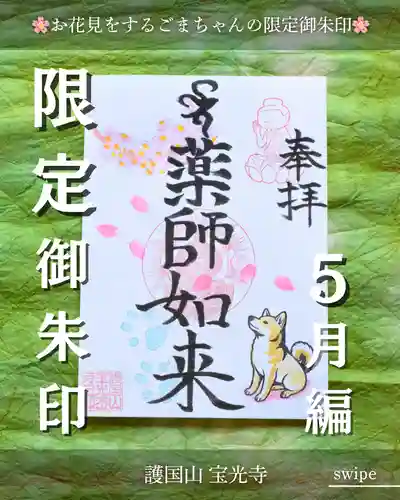 🌸お花見をするごまちゃんの限定御朱印🌸
限定御朱印
奉拝
薬師如来
5月編
護国山 宝光寺
swipe